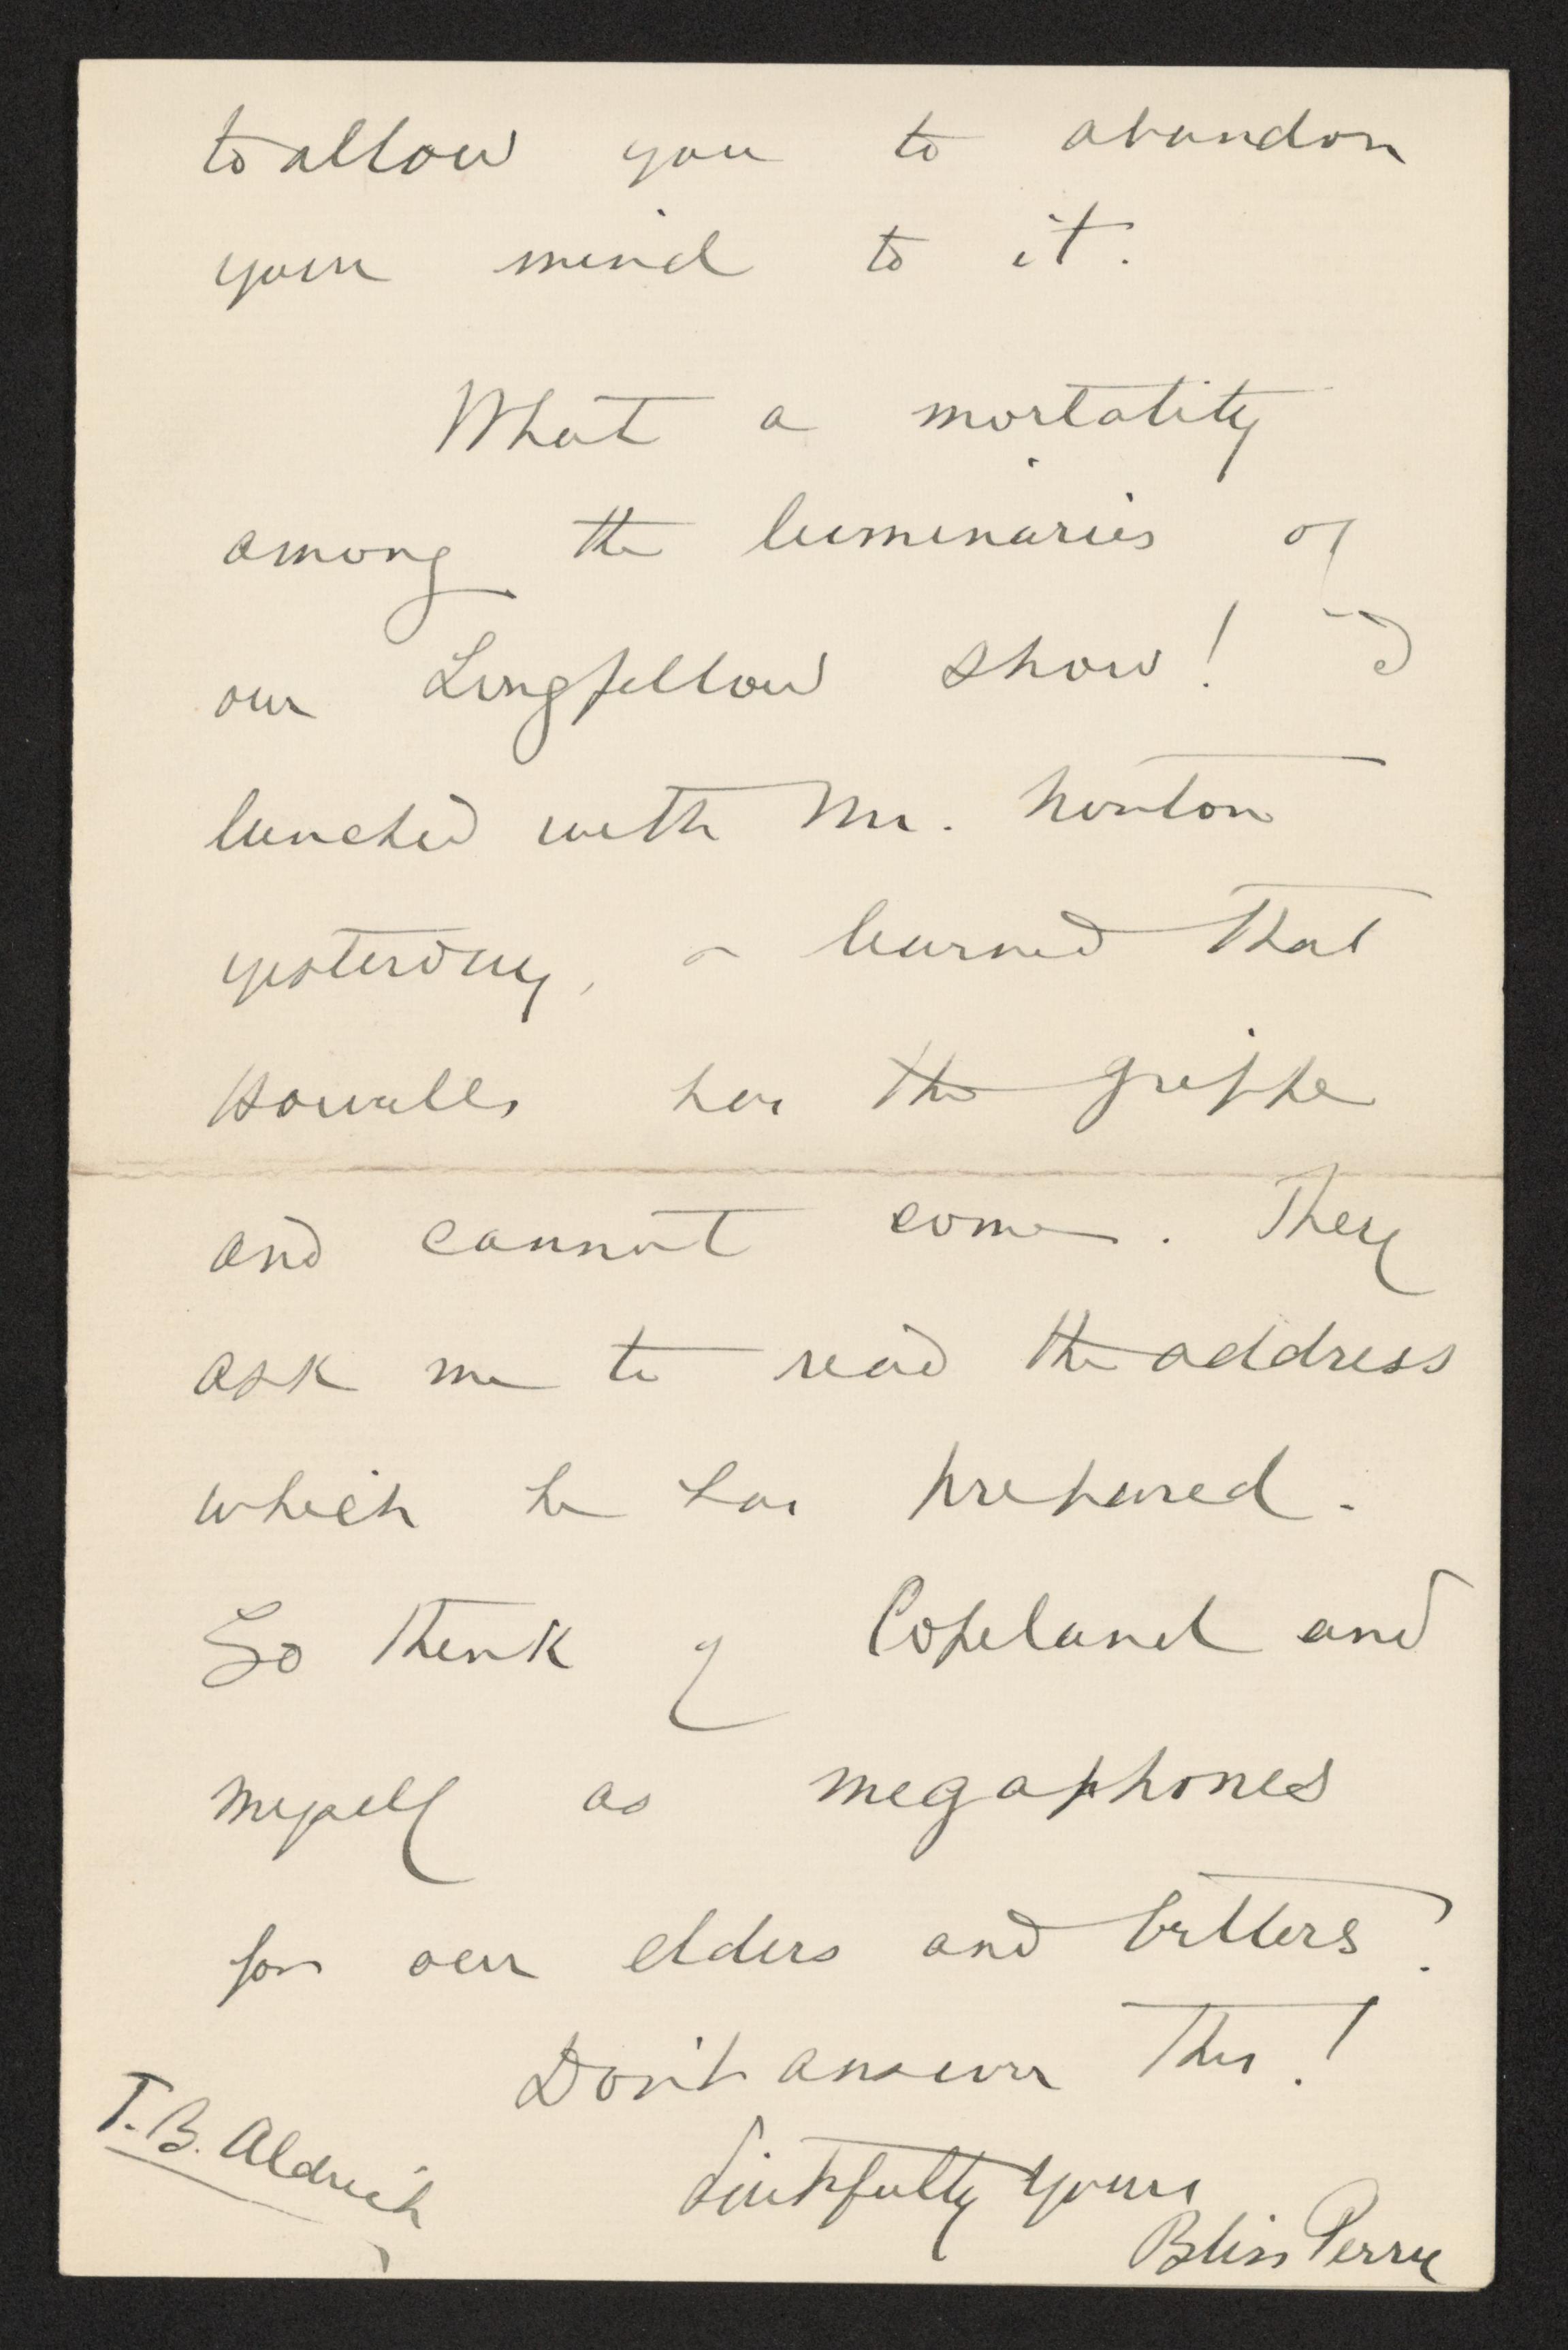 to allow you to abandon
your mind to it.
What a mortality
among the luminaries of
our Longfellow show! I
lunched with Mr. Norton
yesterday, & learned that
Howells has the grippe
and cannot come. They
ask me to read the address
which he has prepared.
So think of Copeland and
myself as megaphones
for our elders and betters!
Don't answer this!
Faithfully yours
Bliss Perry
T. B. Aldrich